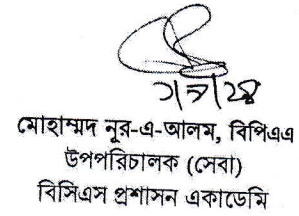 মোহাম্মদ নূর-এ-আলম, বিপিএএ
উপপরিচালক (সেবা)
বিসিএস প্রশাসন একাডেমি